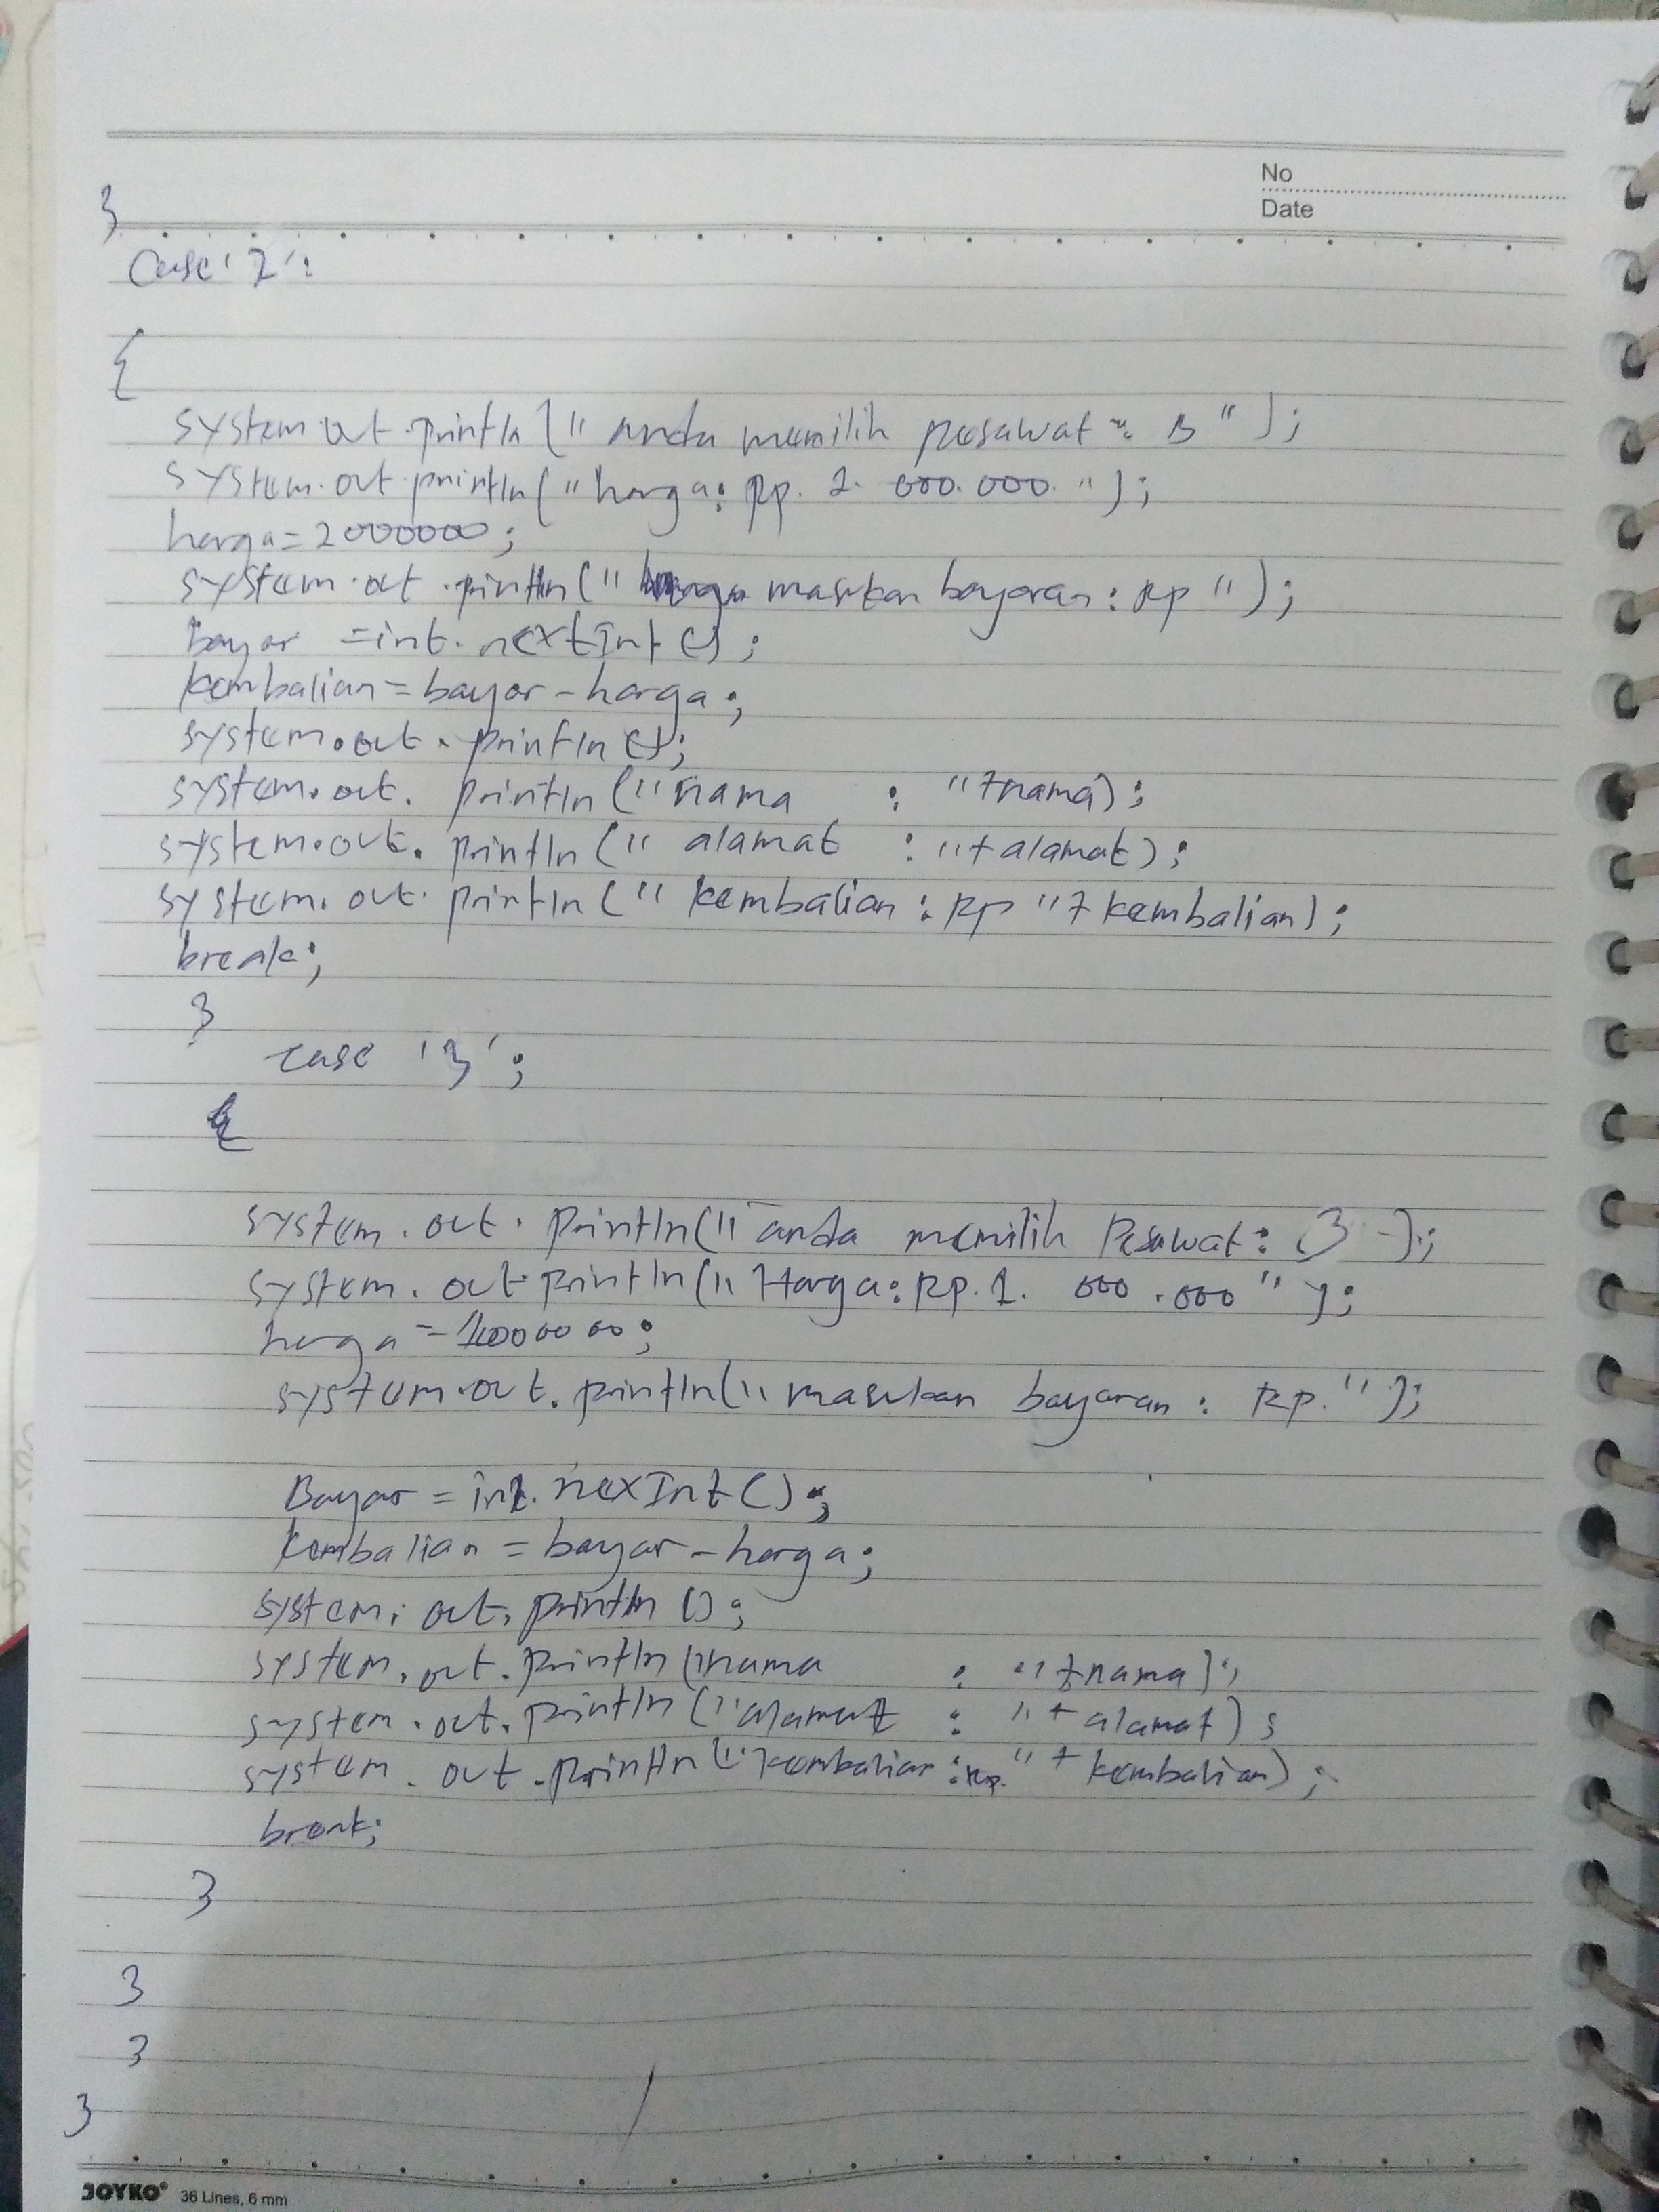 No
Date
}
Case '2':
{
system.out.println(" anda memilih pesawat : B");
system.out.println("harga: Rp. 2.000.000.");
harga=2000000;
system.out.println(" masukan bayaran: Rp ");
bayar =int.nextInt();
kembalian=bayar-harga;
system.out.println();
system.out.println("nama : "+nama);
system.out.println(" alamat : "+alamat);
system.out.println(" kembalian: Rp "+kembalian);
break;
}
case '3';
{
system.out.println("anda memilih Pesawat: );
system.out.println("Harga: Rp.1. 000.000");
harga=1000000;
system.out.println("masukan bayaran: Rp.");
Bayar = int.nexInt();
kembalian = bayar-harga;
system.out.println();
system.out.println("nama : "+nama);
system.out.println("alamat : "+alamat);
system.out.println("kembalian:Rp."+kembalian);
break;
}
}
}
}
JOYKO® 36 Lines, 6 mm